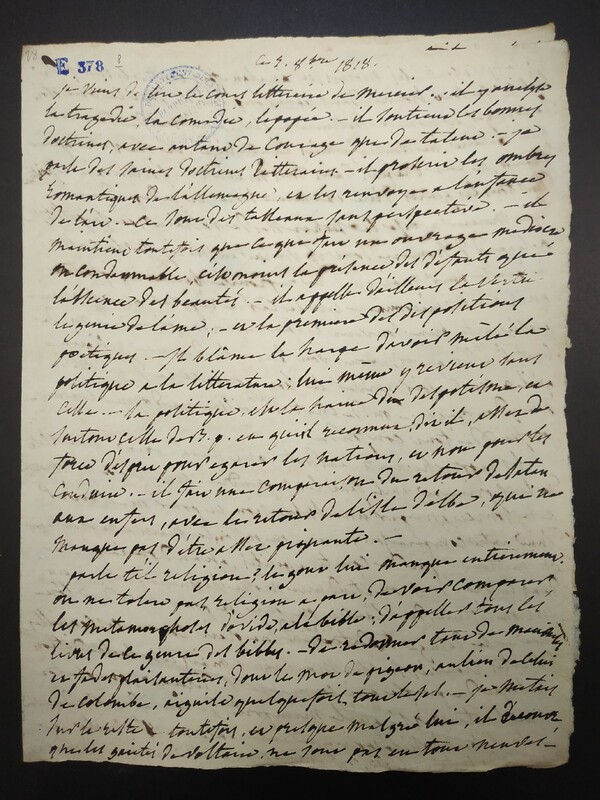 E 378 8
ce 3. 8bre 1818.
je viens de lire le cours littéraire de mercier. il y analyse
la tragédie, la comédie, l'épopée. – il soutient les bonnes
doctrines, avec autant de courage que de talent. – je
parle des saines doctrines littéraires. – il proscrit les ombres
romantiques de l'allemagne, et les renvoye a l'enfance
de l'art. – ce sont des tableaux sans perspective. – il
maintient toutefois que ce qui fait un ouvrage médiocre
ou condamnable, est moins la présence des défauts que
l'absence des beautés. – il appelle d'ailleurs la vertu
le génie de l'ame, – et la première des dispositions
poétiques. – Il blâme la harpe d'avoir mêlé la
politique a la littérature; lui même y revient sans
celle. – la politique, est la haine du despotisme, et
surtout celle de B. p. en qui il reconnut, dit il, assez de
force d'esprit pour égarer les nations, et non pour les
conduire. – il fait une comparaison du retour de satan
aux enfers, avec le retour de l'isle d'elbe, qui ne
manque pas d'être assez piquante. –
parle t'il religion? le gout lui manque entièrement.
on ne tolere pas, religion a part, de voir comparer
les métamorphoses d'ovide, a la bible; d'appeller tous les
livres de ce genre des bibles. – de redonner tout de
ces fades plaisanteries, dont le mot de pigeon, au lieu de celui
de colombe, aiguise quelquefois tout le sel. – je me tais
sur le reste – toutefois, et presque malgré lui, il découvre
que les gaités de voltaire, ne sont pas en tout